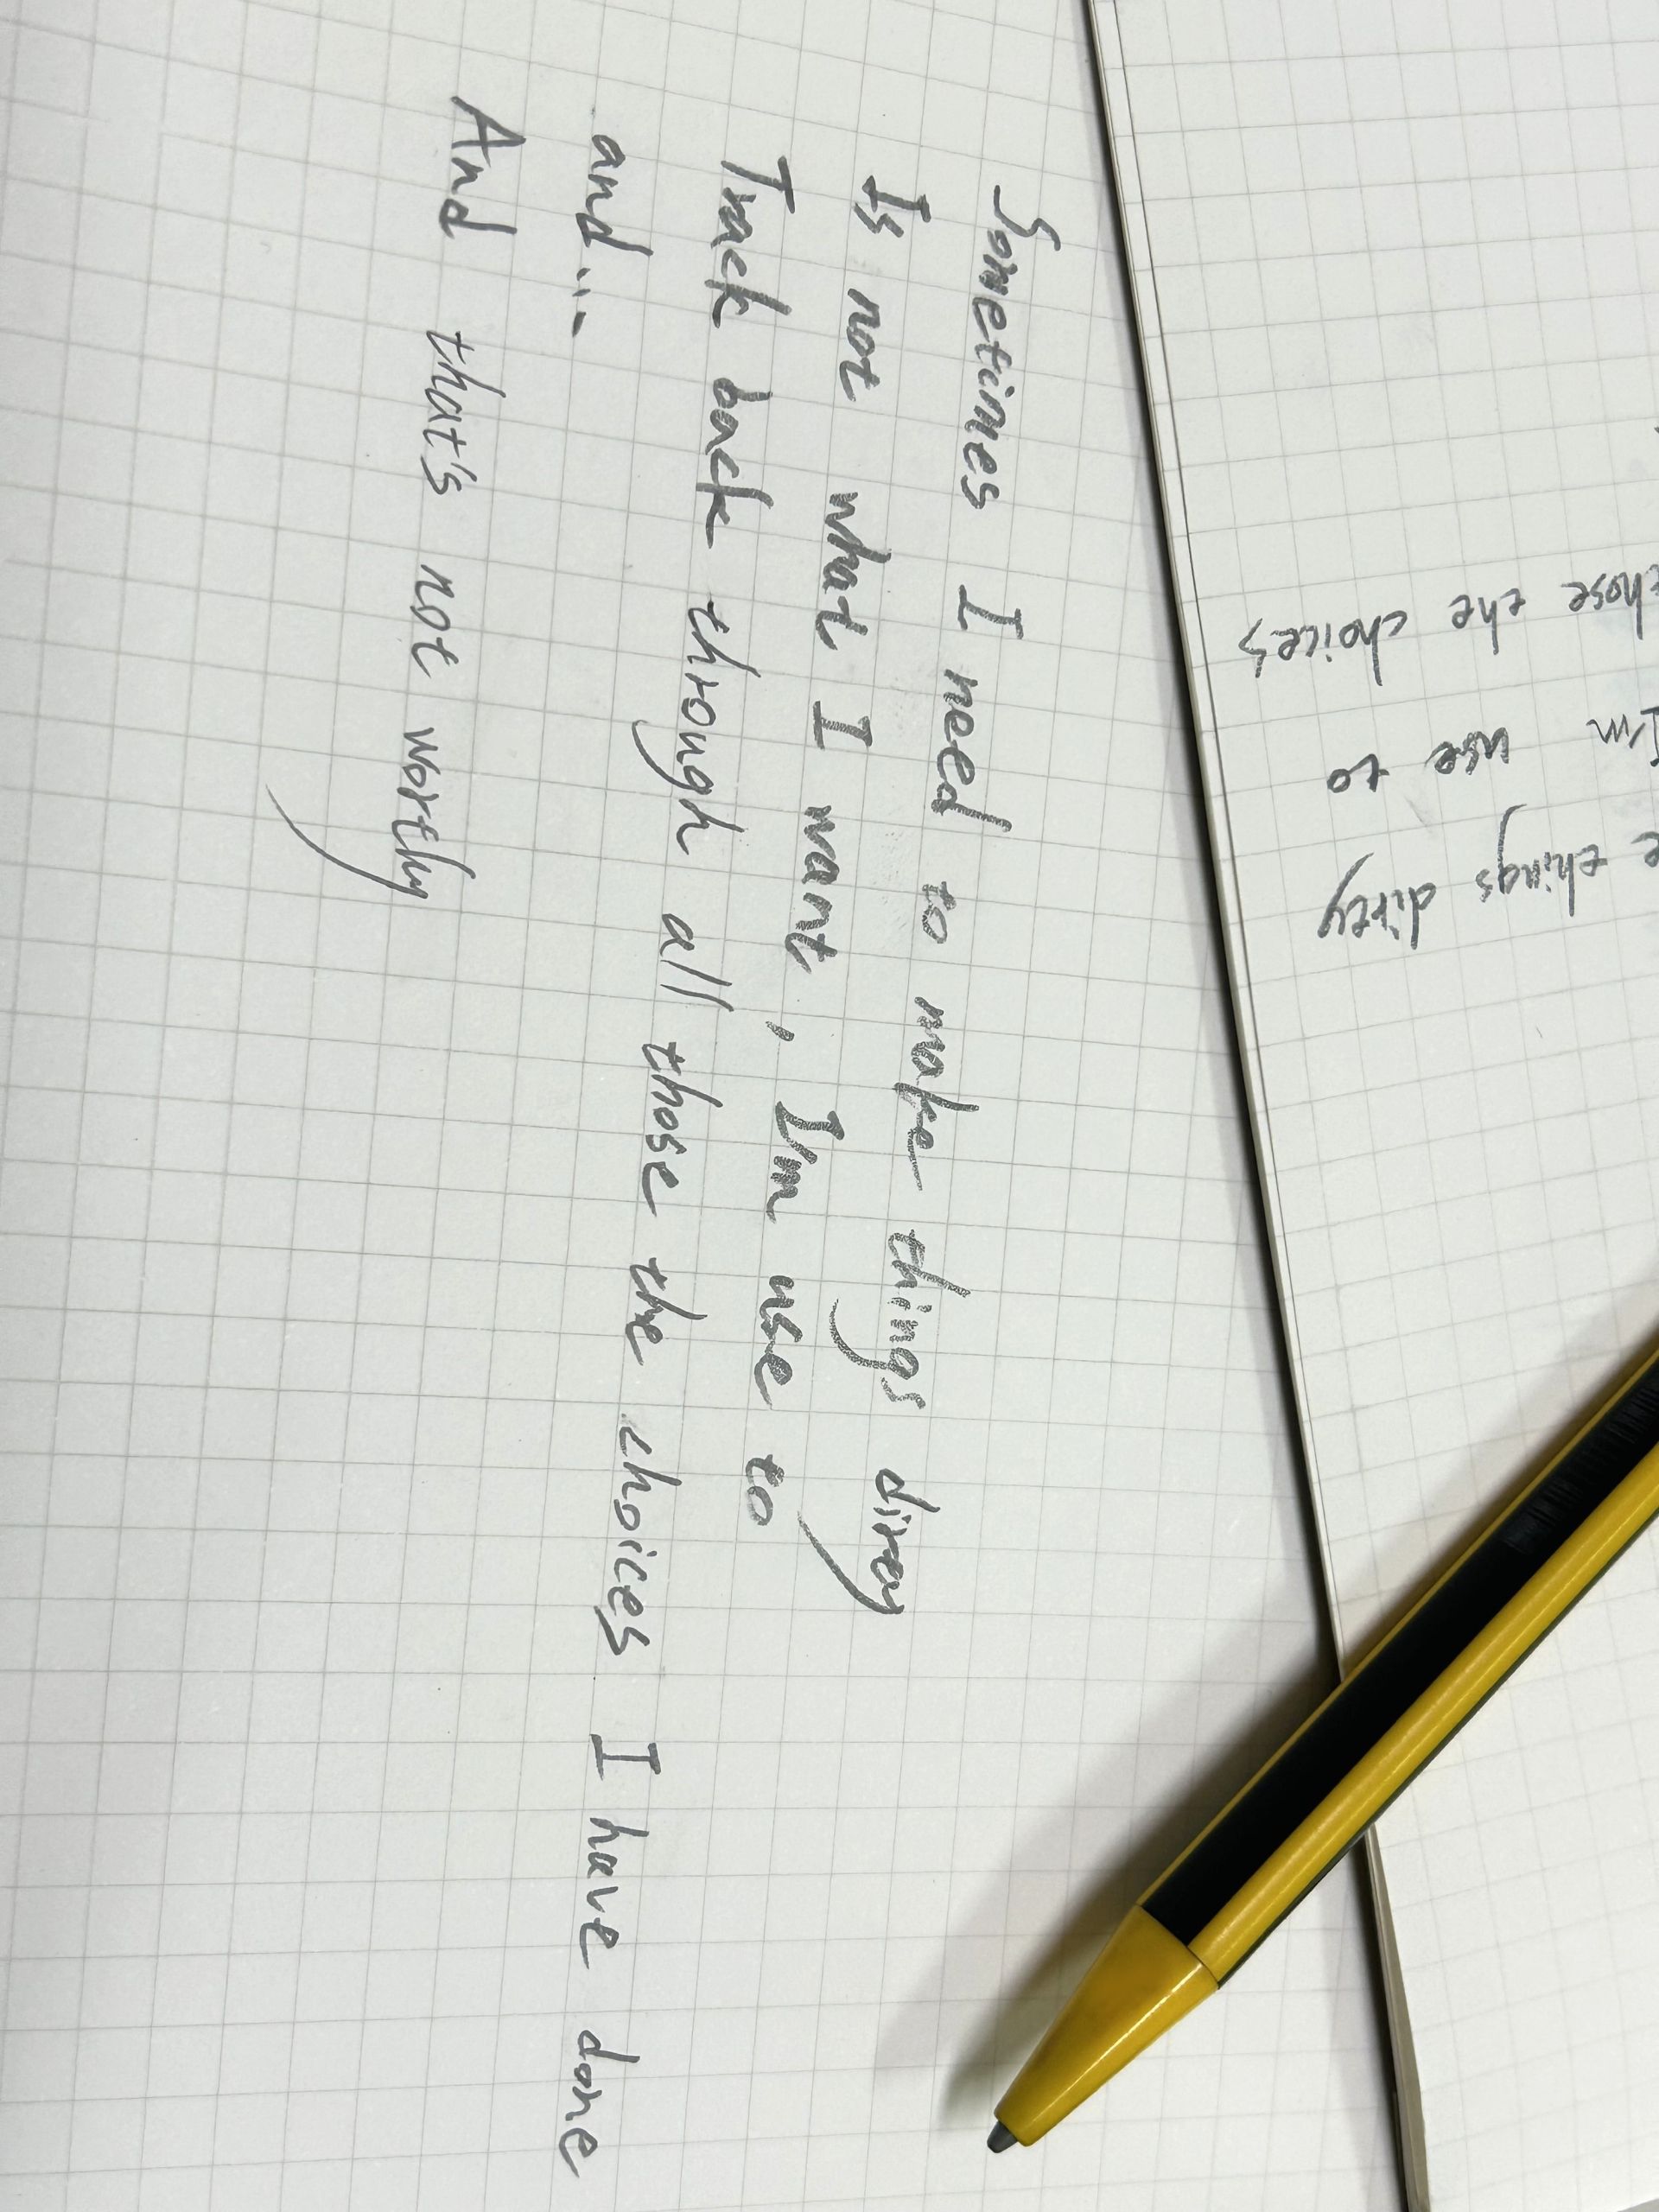 Sometimes I need to make things dirty
Is not what I want, I'm use to
Track back through all those the choices I have done
and...
And that's not worthy
things dirty
use to
those the choices